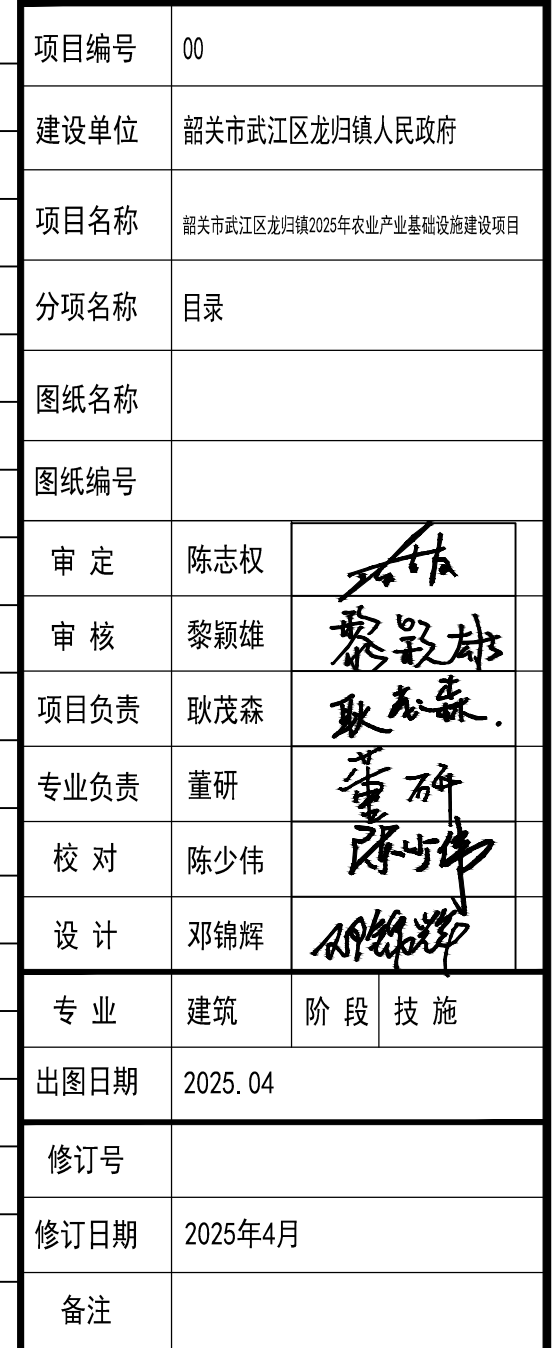 项目编号 00
建设单位 韶关市武江区龙归镇人民政府
项目名称 韶关市武江区龙归镇2025年农业产业基础设施建设项目
分项名称 目录
图纸名称
图纸编号
审 定 陈志权
审 核 黎颖雄 黎颖雄
项目负责 耿茂森 耿茂森
专业负责 董研 董研
校 对 陈少伟 陈少伟
设 计 邓锦辉 邓锦辉
专 业 建筑 阶 段 技 施
出图日期 2025.04
修订号
修订日期 2025年4月
备注